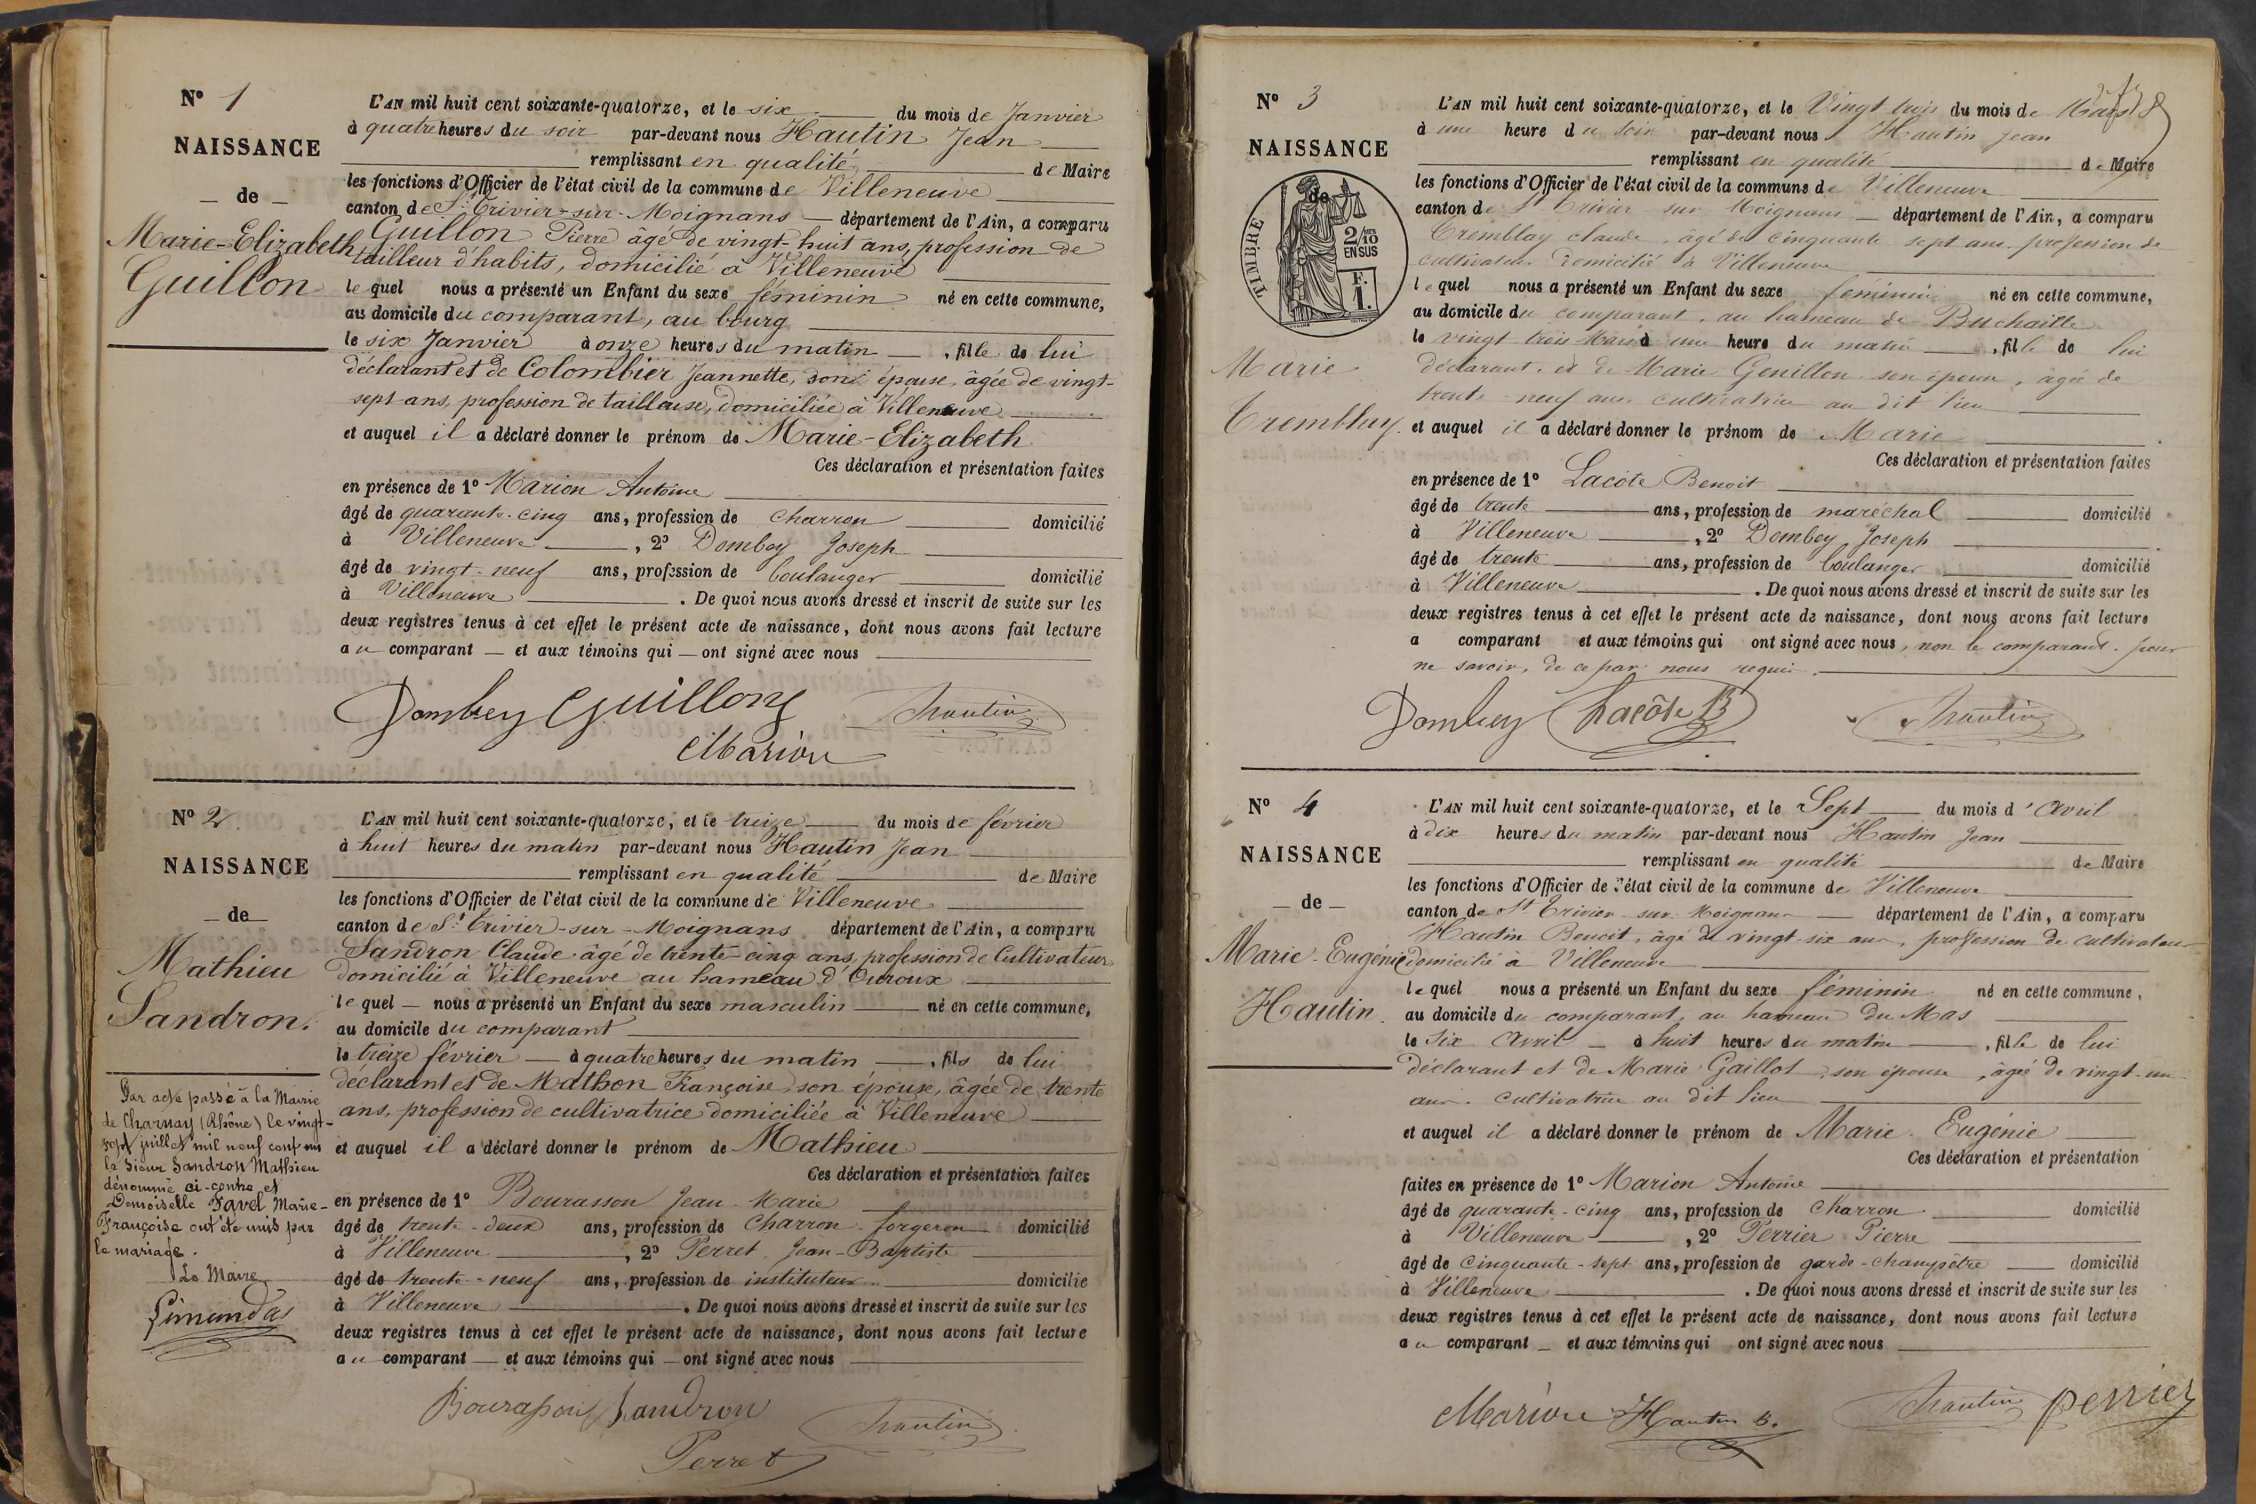 N° 1
NAISSANCE
— de —
Marie-Elizabeth
Guillon
L'AN mil huit cent soixante-quatorze, et le six du mois de Janvier
à quatre heures du soir par-devant nous Hautin Jean
remplissant en qualité de Maire
les fonctions d'Officier de l'état civil de la commune de Villeneuve
canton de St Trivier-sur-Moignans — département de l'Ain, a comparu
Guillon Pierre âgé de vingt-huit ans, profession de
tailleur d'habits, domicilié à Villeneuve
le quel nous a présenté un Enfant du sexe féminin né en cette commune,
au domicile du comparant, au bourg
le six Janvier à onze heures du matin — , fille de lui
déclarant et de Colombier Jeannette, son épouse, âgée de vingt-
sept ans, profession de tailleuse, domiciliée à Villeneuve
et auquel il a déclaré donner le prénom de Marie-Elizabeth
Ces déclaration et présentation faites
en présence de 1° Marion Antoine
âgé de quarante-cinq ans, profession de charron domicilié
à Villeneuve , 2° Dombey Joseph
âgé de vingt-neuf ans, profession de boulanger domicilié
à Villeneuve . De quoi nous avons dressé et inscrit de suite sur les
deux registres tenus à cet effet le présent acte de naissance, dont nous avons fait lecture
au comparant — et aux témoins qui — ont signé avec nous
Dombey Guillon Hautin
Marion
N° 2
NAISSANCE
— de —
Mathieu
Sandron.
Par acte passé à la Mairie
de Charnay (Rhône) le vingt-
sept juillet mil neuf cent un
le Sieur Sandron Mathieu
dénommé ci-contre et
Demoiselle Favel Marie-
Françoise ont été unis par
le mariage.
Le Maire
L'AN mil huit cent soixante-quatorze, et le treize du mois de février
à huit heures du matin par-devant nous Hautin Jean
remplissant en qualité de Maire
les fonctions d'Officier de l'état civil de la commune de Villeneuve
canton de St Trivier-sur-Moignans département de l'Ain, a comparu
Sandron Claude âgé de trente-cinq ans, profession de Cultivateur
domicilié à Villeneuve au hameau d'Ouroux
le quel — nous a présenté un Enfant du sexe masculin né en cette commune,
au domicile du comparant
le treize février — à quatre heures du matin — , fils de lui
déclarant et de Mathon Françoise son épouse, âgée de trente
ans, profession de cultivatrice domiciliée à Villeneuve
et auquel il a déclaré donner le prénom de Mathieu
Ces déclaration et présentation faites
en présence de 1° Bourasson Jean-Marie
âgé de trente-deux ans, profession de Charron-forgeron domicilié
à Villeneuve , 2° Perret Jean-Baptiste
âgé de trente-neuf ans, profession de instituteur domicilié
à Villeneuve . De quoi nous avons dressé et inscrit de suite sur les
deux registres tenus à cet effet le présent acte de naissance, dont nous avons fait lecture
au comparant — et aux témoins qui — ont signé avec nous
Bourasson Sandron Hautin
Perret
N° 3
NAISSANCE
de
TIMBRE
2/10
EN SUS
F.
1.
Marie
Tremblay
L'AN mil huit cent soixante-quatorze, et le Vingt trois du mois de Mars
à une heure du soir par-devant nous Hautin Jean
remplissant en qualité de Maire
les fonctions d'Officier de l'état civil de la commune de Villeneuve
canton de St Trivier sur Moignans — département de l'Ain, a comparu
Tremblay Claude, âgé de cinquante sept ans, profession de
cultivateur domicilié à Villeneuve
le quel nous a présenté un Enfant du sexe féminin né en cette commune,
au domicile du comparant, au hameau de Buchaille
le vingt trois Mars à une heure du matin — , fille de lui
déclarant, et de Marie Genillon son épouse, âgée de
trente-neuf ans cultivatrice au dit lieu
et auquel il a déclaré donner le prénom de Marie
Ces déclaration et présentation faites
en présence de 1° Lacôte Benoit
âgé de trente ans, profession de maréchal domicilié
à Villeneuve , 2° Dombey Joseph
âgé de trente ans, profession de boulanger domicilié
à Villeneuve . De quoi nous avons dressé et inscrit de suite sur les
deux registres tenus à cet effet le présent acte de naissance, dont nous avons fait lecture
a comparant et aux témoins qui ont signé avec nous, non le comparant pour
ne savoir, de ce par nous requis.
Dombey Lacôte B Hautin
N° 4
NAISSANCE
— de —
Marie-Eugénie
Hautin.
L'AN mil huit cent soixante-quatorze, et le Sept du mois d'Avril
à dix heures du matin par-devant nous Hautin Jean
remplissant en qualité de Maire
les fonctions d'Officier de l'état civil de la commune de Villeneuve
canton de St Trivier sur Moignans — département de l'Ain, a comparu
Hautin Benoit, âgé de vingt-six ans, profession de cultivateur
domicilié à Villeneuve
le quel nous a présenté un Enfant du sexe féminin né en cette commune,
au domicile du comparant, au hameau du Mas
le Six Avril — à huit heures du matin — , fille de lui
déclarant et de Marie Gaillot, son épouse, âgée de vingt-un
ans. Cultivatrice au dit lieu
et auquel il a déclaré donner le prénom de Marie Eugénie
Ces déclaration et présentation
faites en présence de 1° Marion Antoine
âgé de quarante-cinq ans, profession de charron domicilié
à Villeneuve , 2° Perrier Pierre
âgé de Cinquante-sept ans, profession de garde-champêtre domicilié
à Villeneuve . De quoi nous avons dressé et inscrit de suite sur les
deux registres tenus à cet effet le présent acte de naissance, dont nous avons fait lecture
au comparant — et aux témoins qui ont signé avec nous
Marion Hautin B. Hautin perrier